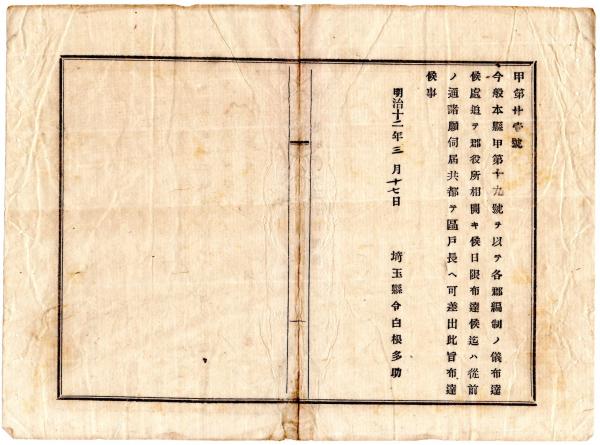 甲第廿壹號
今般本縣甲第十九號ヲ以テ各郡編制ノ儀布達
候處追テ郡役所相開キ候日限布達候迄ハ從前
ノ通諸願伺届共都テ區戸長ヘ可差出此旨布達
候事
明治十二年三月十七日
埼玉縣令白根多助